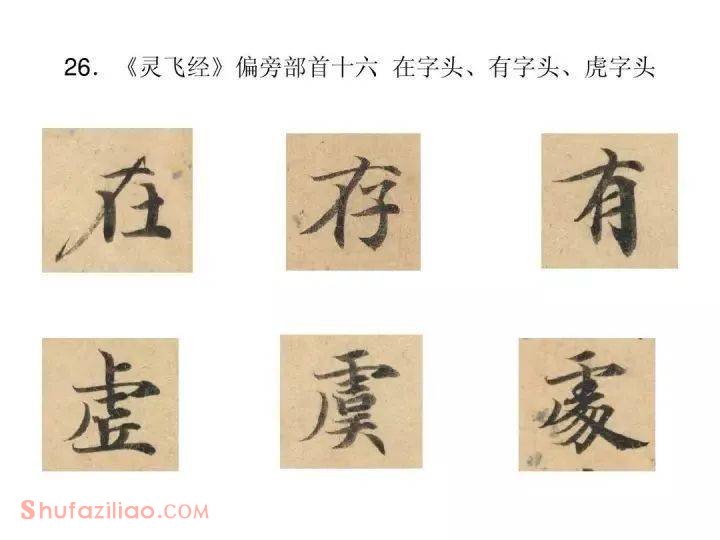 26．《灵飞经》偏旁部首十六 在字头、有字头、虎字头
在 存 有
虚 虞 處
Shufaziliao.com